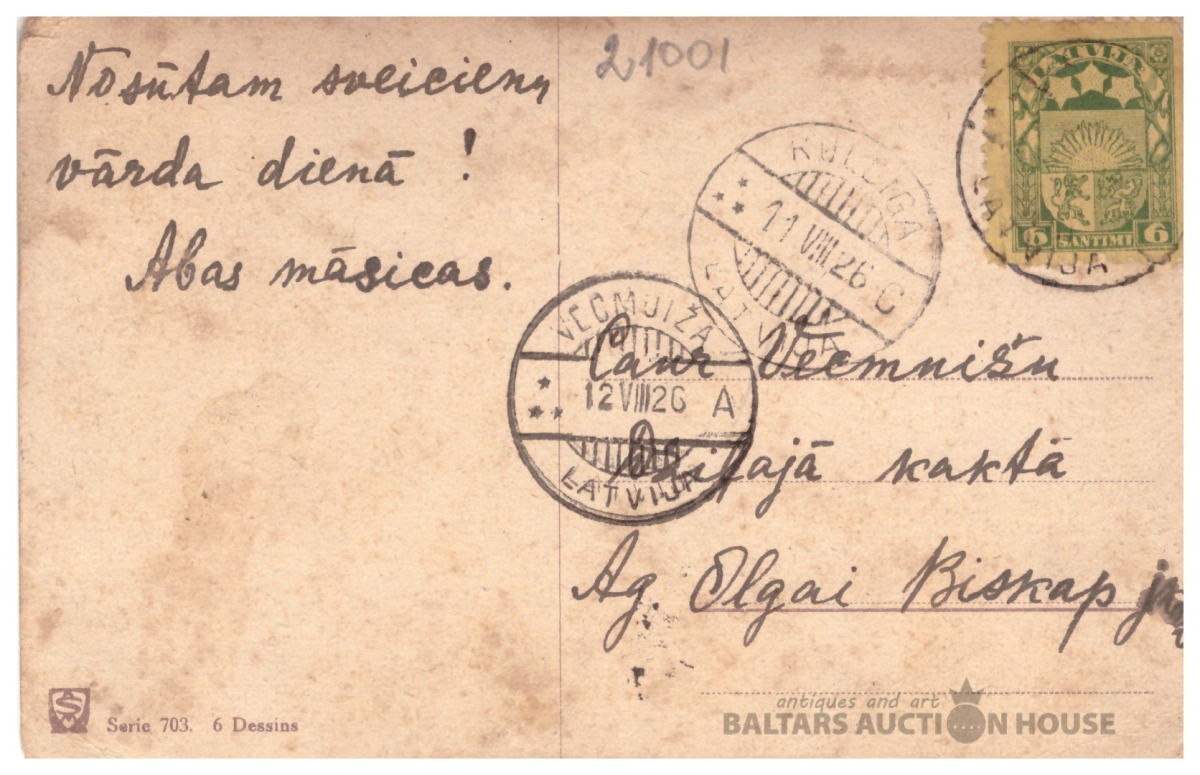 Nosūtam sveicienu
vārda dienā !
Abas māsicas.
21001
LATVIJA
6 SANTIMI 6
LATVIJA
KULDIGA
11 VIII 26 C
LATVIJA
VECMUIŽA
12 VIII 26 A
LATVIJA
Caur Vecmuižu
kaktā
Ag. Olgai Biskap
Serie 703. 6 Dessins
antiques and art
BALTARS AUCTION HOUSE